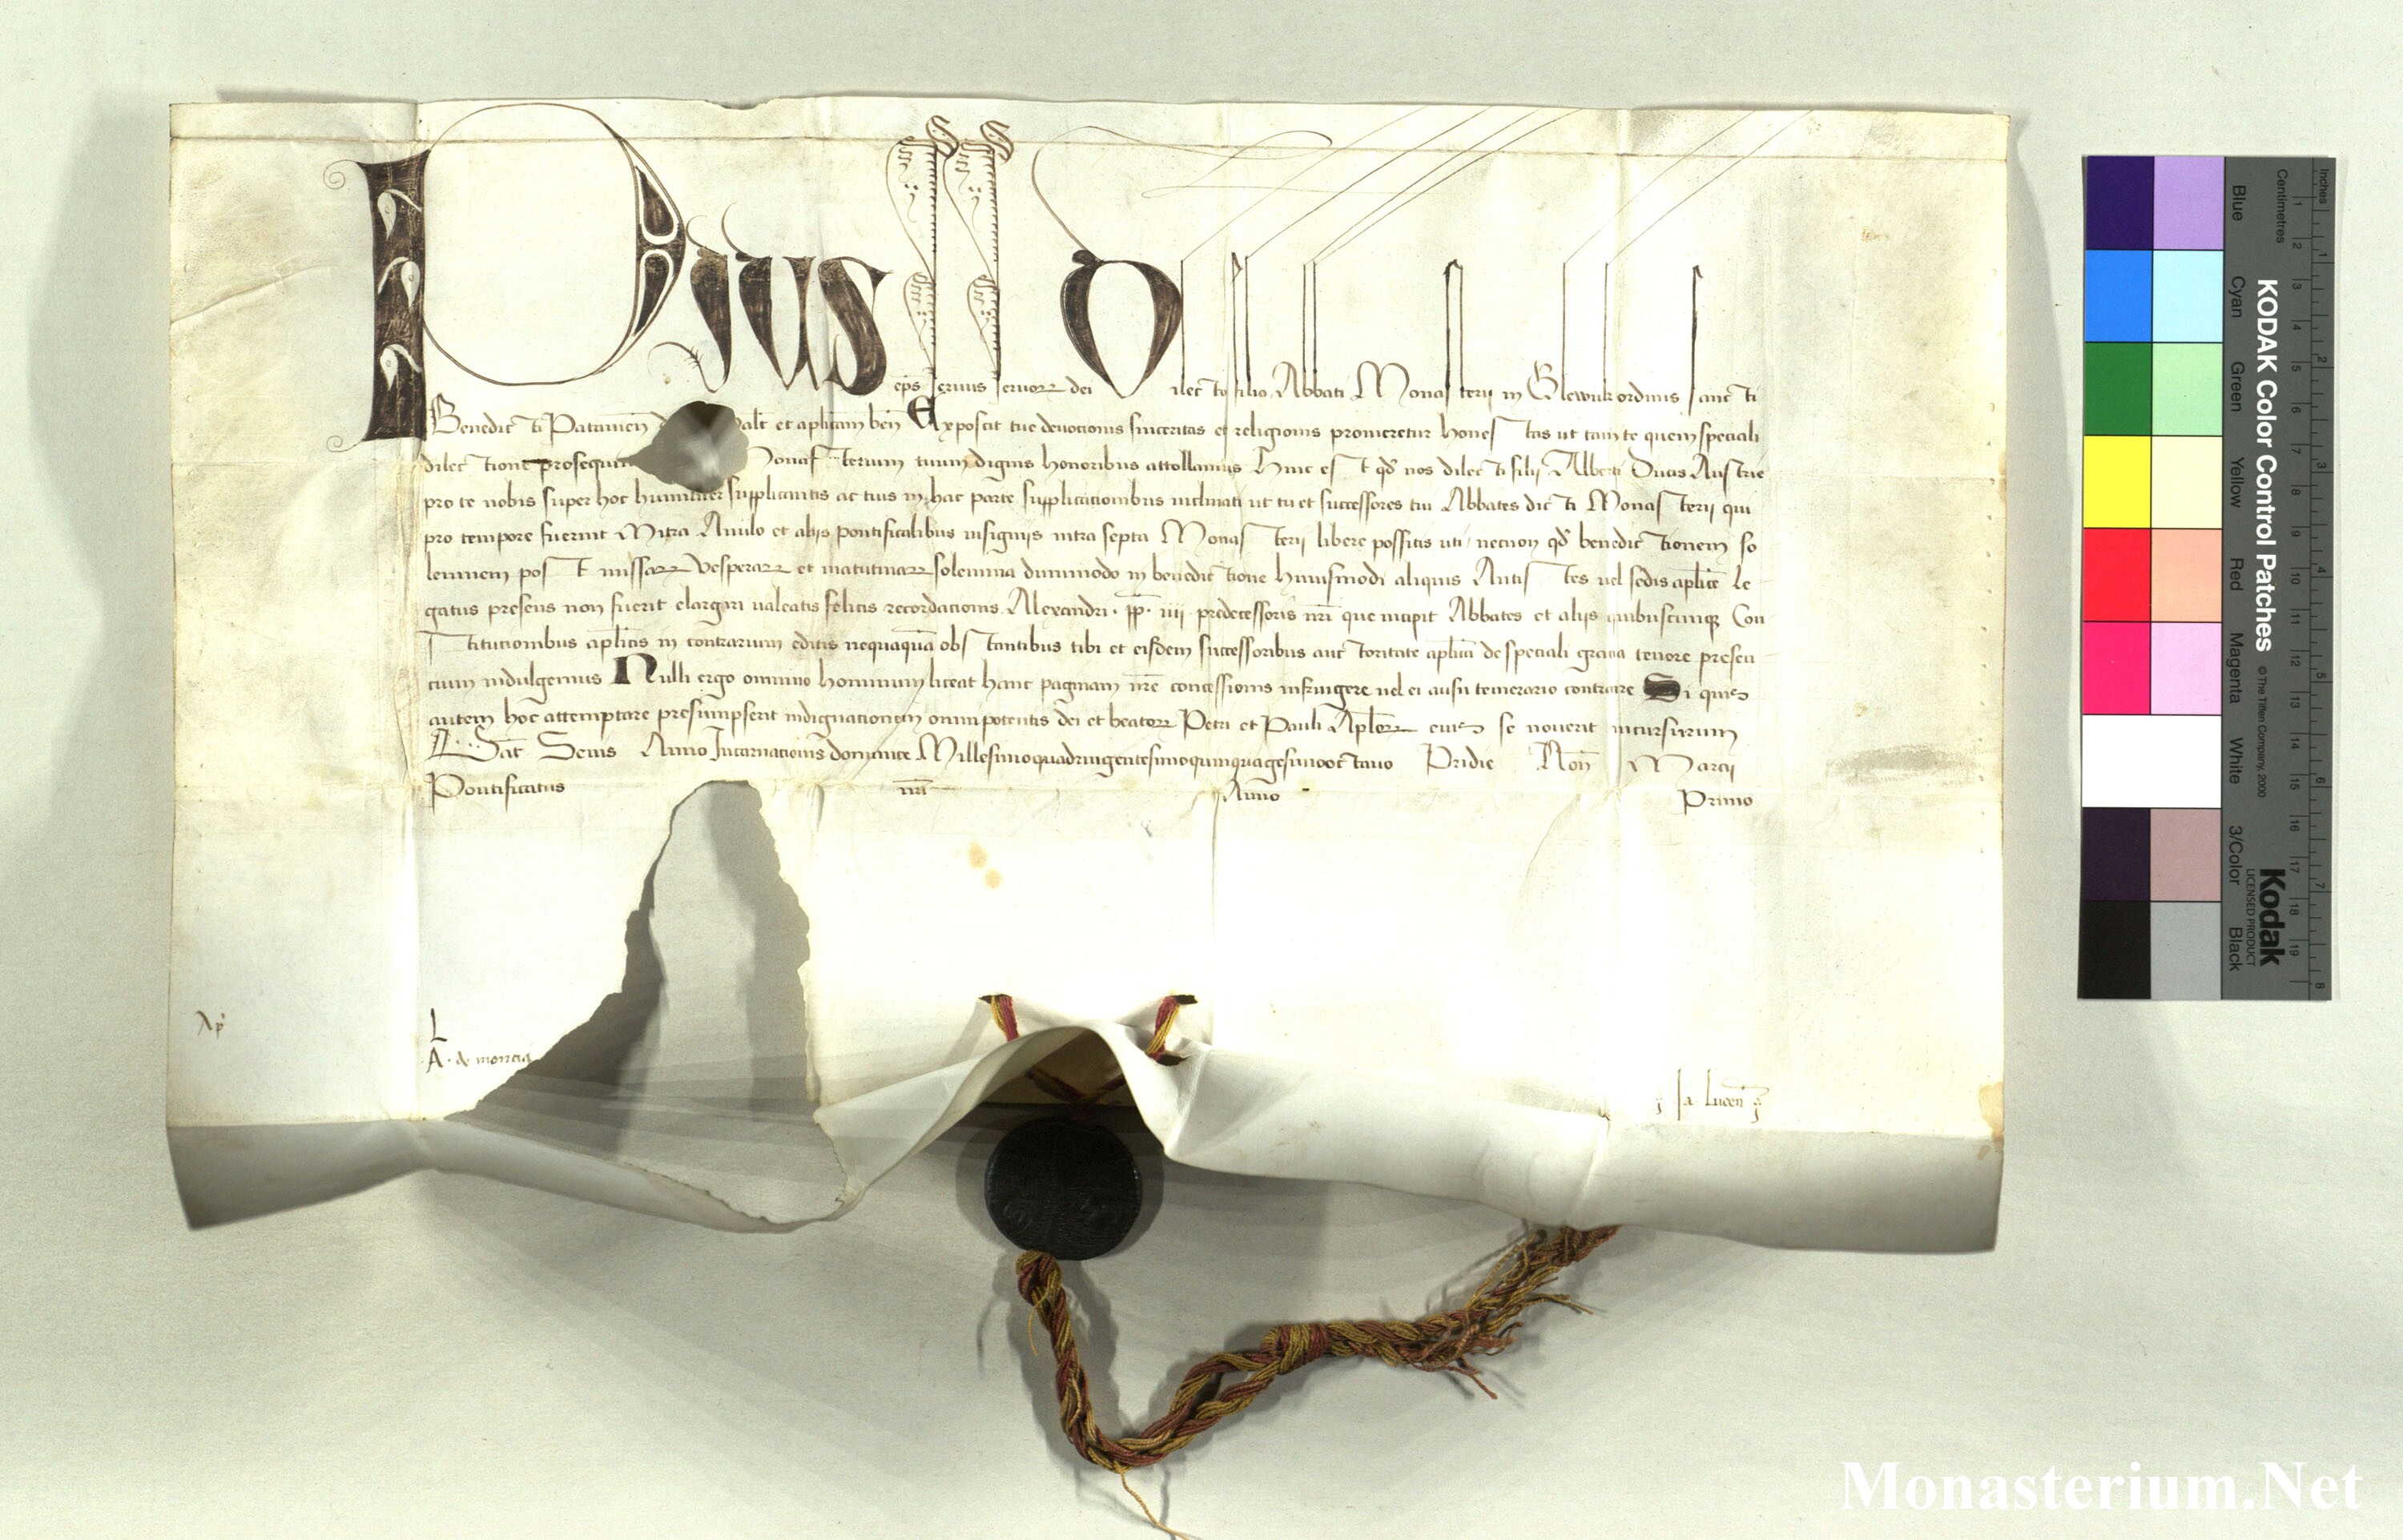 Pius eps seruus seruorꝝ dei Dilecto filio Abbati Monasterij in Glewnk ordinis sancti
Benedicti Patauien salt et aplicam ben Exposcit tue deuocionis sinceritas et religionis promeretur honestas ut tam te quem speciali
dilectione prosequim Monasterium tuum dignis honoribus attollamus Hinc est qd nos dilecti filij Alberti Ducis Austrie
pro te nobis super hoc humiliter supplicantis ac tuis in hac parte supplicacionibus inclinati ut tu et successores tui Abbates dicti Monasterij qui
pro tempore fuerint Mitra Anulo et alijs pontificalibus insignijs intra septa Monasterij libere possitis uti necnon qd benedictionem so
lemnem post missarꝝ vesperarꝝ et matutinarꝝ solemnia dummodo in benedictione huiusmodi aliquis Antistes uel sedis aplice Le
gatus presens non fuerit elargiri ualeatis felicis recordacionis Alexandri · pp · iiij · predecessoris nri que incipit Abbates et alijs quibuscunqꝫ Con
stitucionibus aplicis in contrarium editis nequaquam obstantibus tibi et eisdem successoribus auctoritate aplica de speciali gracia tenore presen
cium indulgemus Nulli ergo omnino hominum liceat hanc paginam nre concessionis infringere uel ei ausu temerario contraire Si quis
autem hoc attemptare presumpserit indignationem omnipotentis dei et beatorꝝ Petri et Pauli Aplorꝝ eius se nouerit incursurum
Dat Senis Anno Incarnacionis dominice Millesimoquadringentesimoquinquagesimooctauo Pridie Non Marcij
Pontificatus nri Anno Primo
L
A. de moncia
Ja. Lucen
KODAK Color Control Patches © The Tiffen Company, 2000
Kodak
LICENSED PRODUCT
Blue Cyan Green Yellow Red Magenta White 3/Color Black
Inches 1 2 3 4 5 6 7 8
Centimetres 1 2 3 4 5 6 7 8 9 10 11 12 13 14 15 16 17 18 19
Monasterium.Net